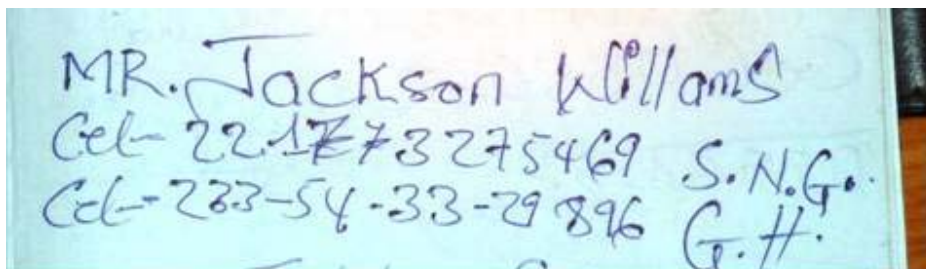 MR. Jackson Willams
Cel- 221773275469 S.N.G.
Cel-233-54-33-29896 G.H.